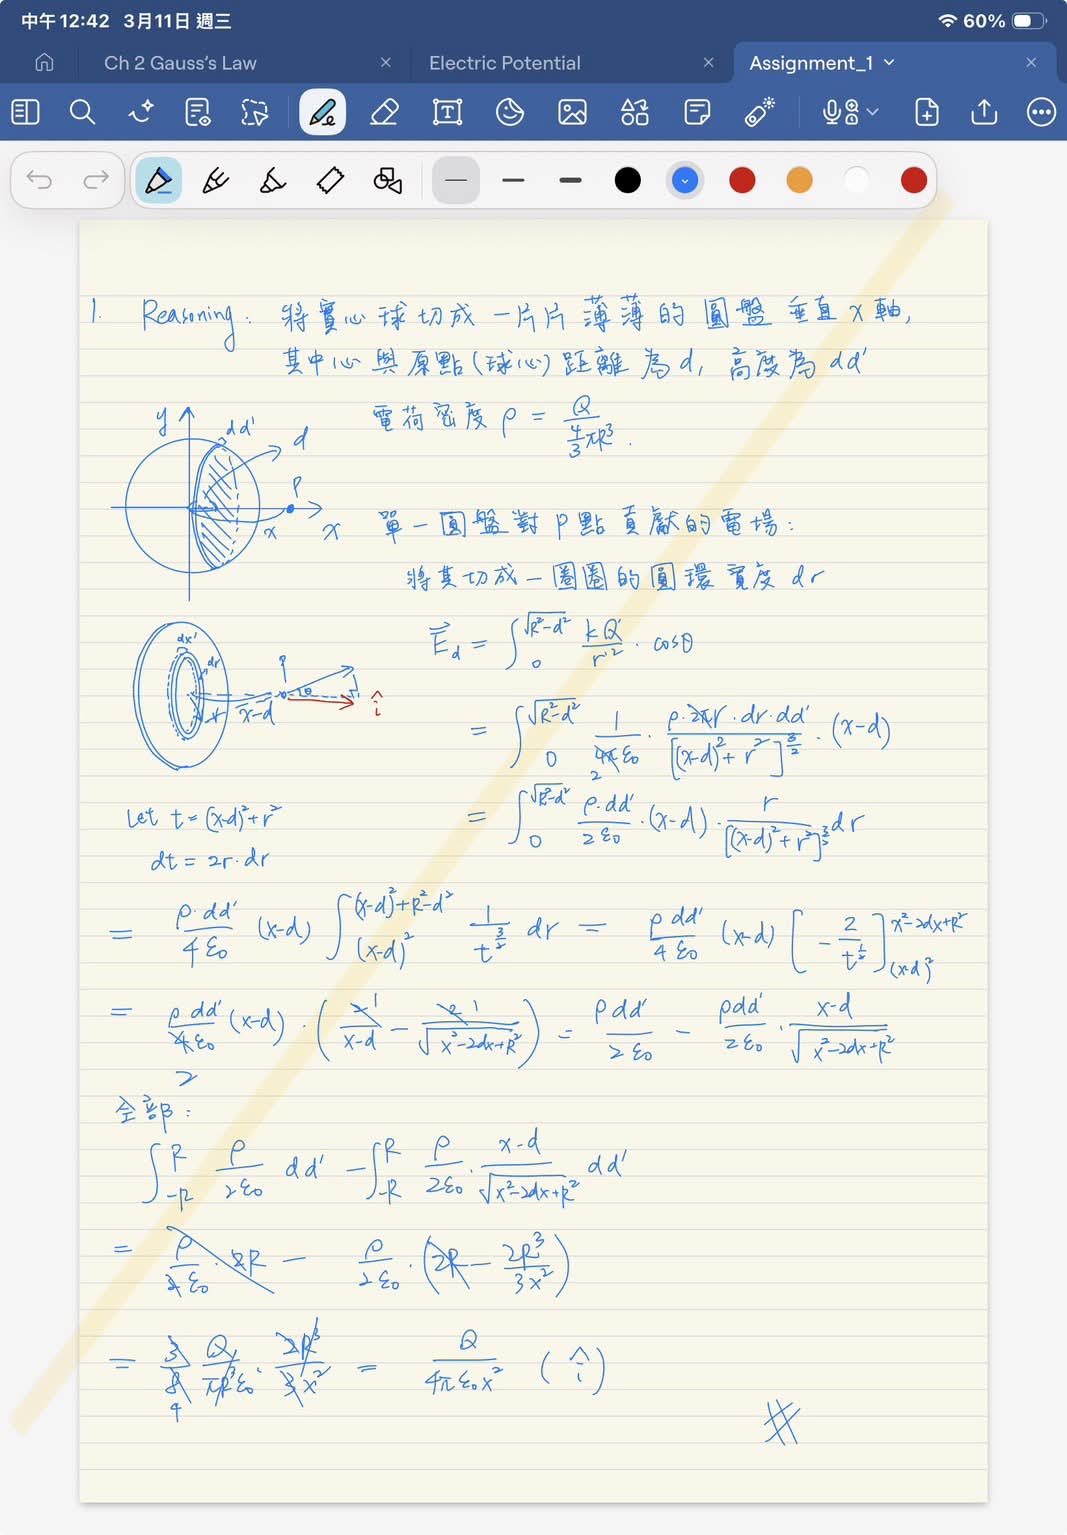 中午12:42 3月11日 週三
60%
Ch 2 Gauss's Law
Electric Potential
Assignment_1
1. Reasoning: 將實心球切成一片片薄薄的圓盤垂直x軸,
其中心與原點(球心)距離為d, 高度為dd'
電荷密度 ρ = Q / (4/3 πR³).
y dd' d P x x
單一圓盤對P點貢獻的電場:
將其切成一圈圈的圓環寬度 dr
dx' dr r x-d P θ î
E⃗_d = ∫_0^√(R²-d²) kQ'/r'² · cosθ
= ∫_0^√(R²-d²) 1/(4πε₀) · ρ·2πr·dr·dd' / [(x-d)²+r²]^(3/2) · (x-d)
2
= ∫_0^√(R²-d²) ρ·dd'/(2ε₀) · (x-d) · r/[(x-d)²+r²]^(3/2) dr
Let t = (x-d)²+r²
dt = 2r·dr
= ρ·dd'/(4ε₀) (x-d) ∫_(x-d)²^((x-d)²+R²-d²) 1/t^(3/2) dr = ρdd'/(4ε₀) (x-d) [-2/t^(1/2)]_(x-d)²^(x²-2dx+R²)
= ρdd'/(4ε₀) (x-d) · (2/(x-d) - 2/√(x²-2dx+R²)) = ρdd'/(2ε₀) - ρdd'/(2ε₀) · (x-d)/√(x²-2dx+R²)
1 1
2
全部:
∫_-R^R ρ/(2ε₀) dd' - ∫_-R^R ρ/(2ε₀) · (x-d)/√(x²-2dx+R²) dd'
= ρ/(2ε₀) · 2R - ρ/(2ε₀) · (2R - 2R³/(3x²))
= 3/8 Q/(πR³ε₀) · 2R³/(3x²) = Q/(4πε₀x²) (î)
4
#